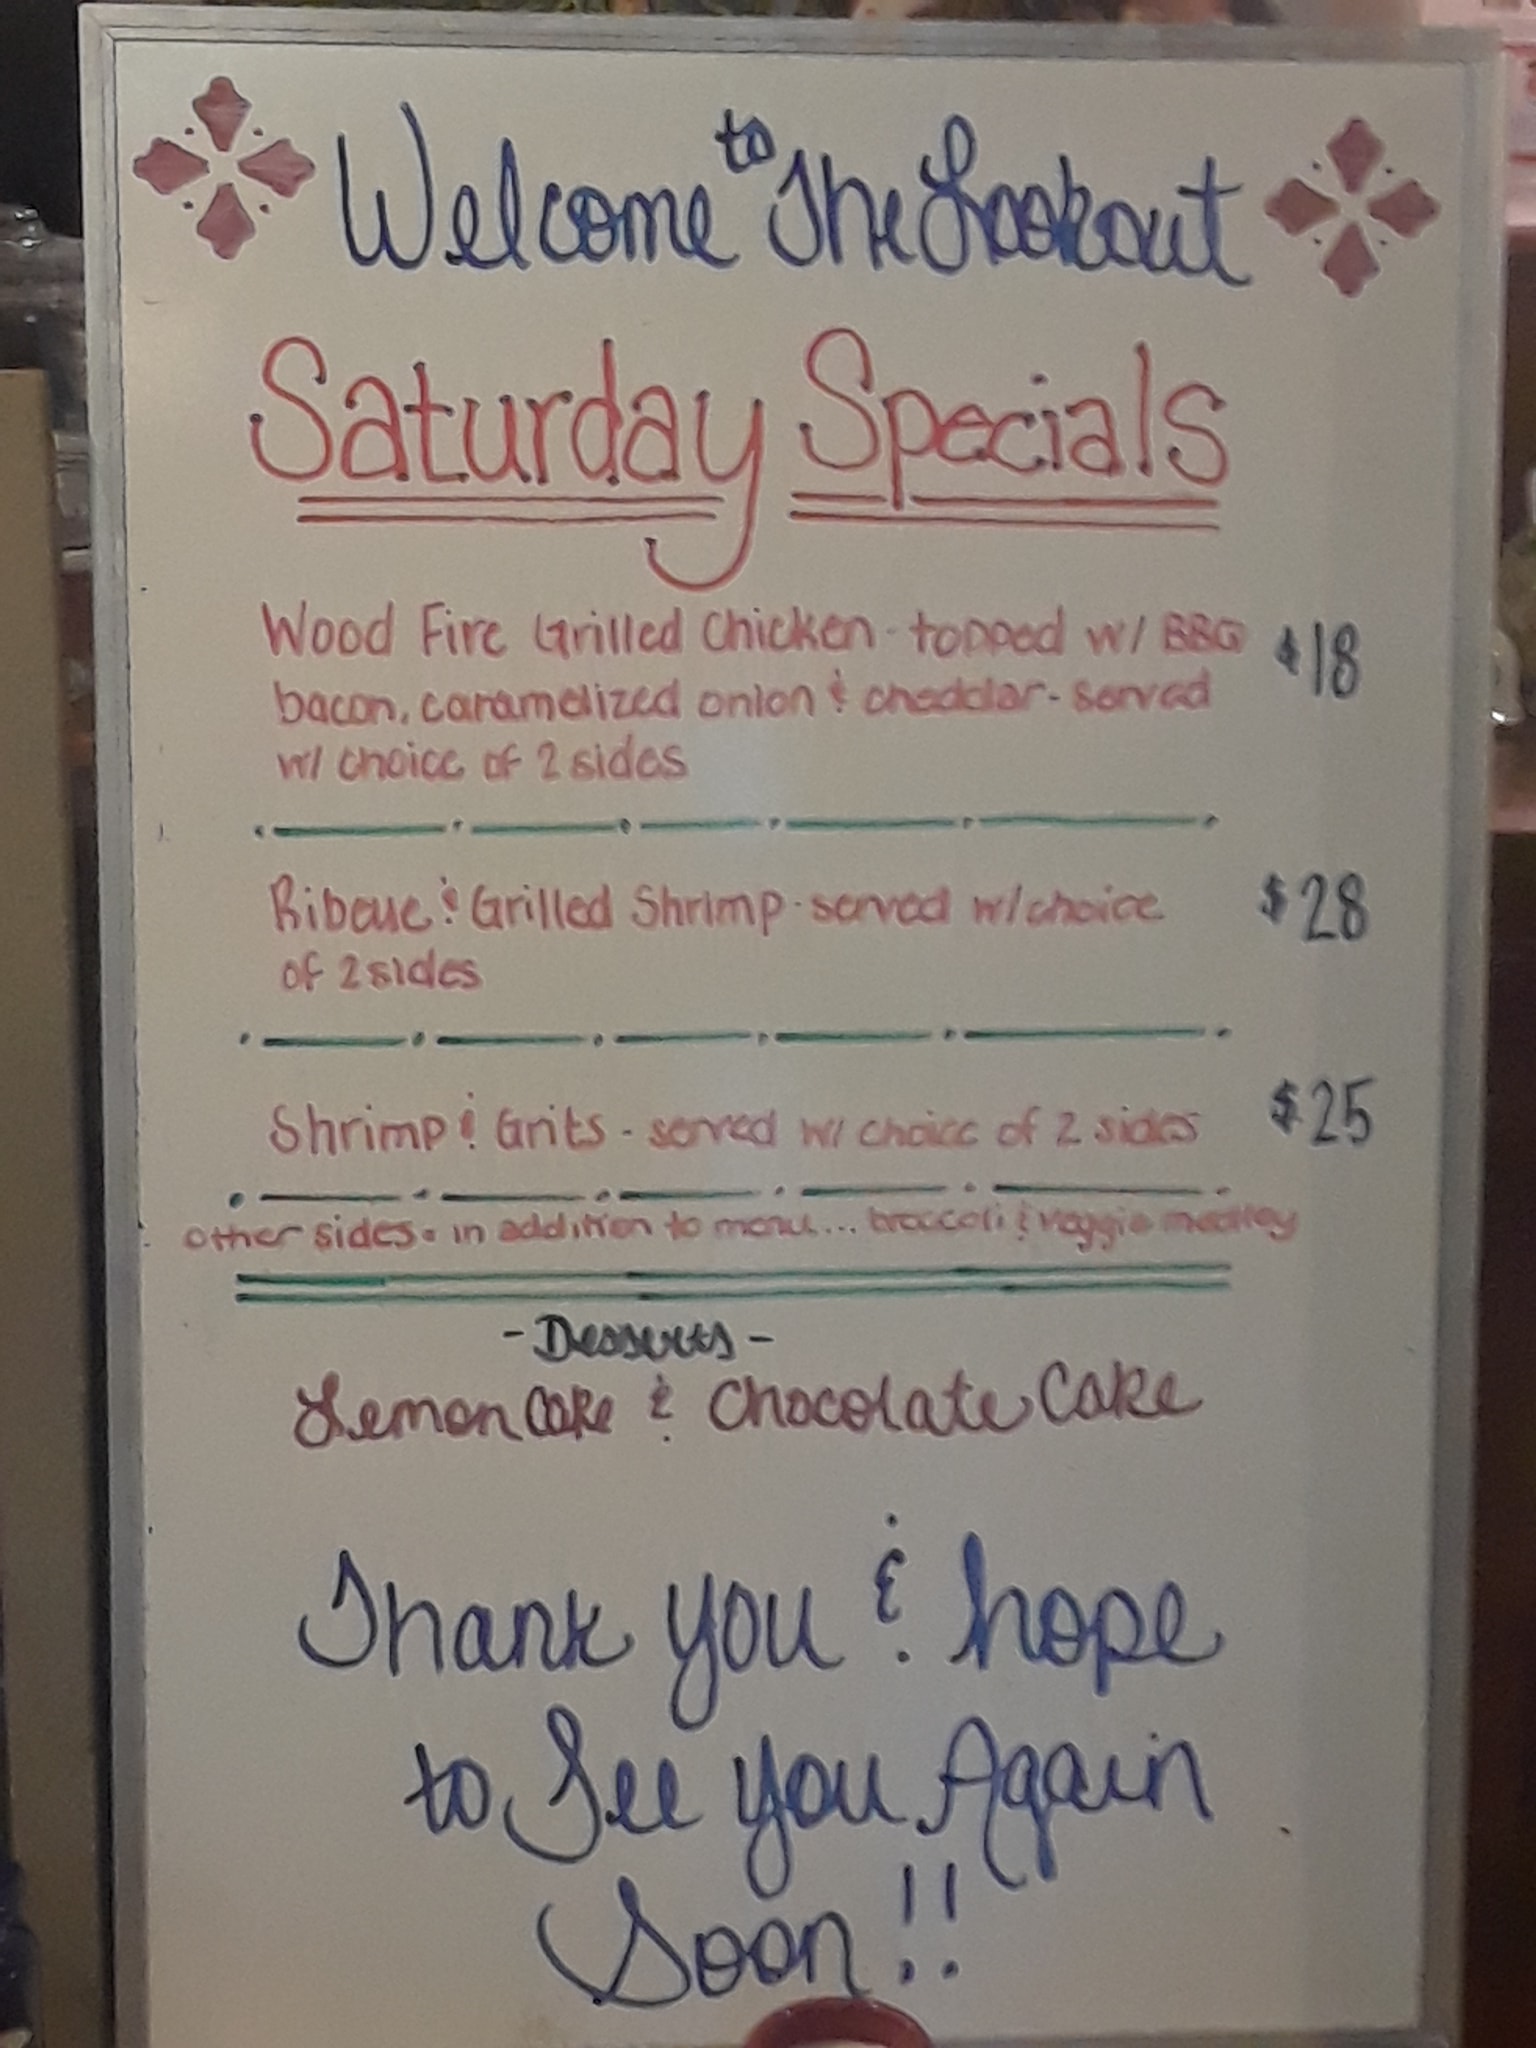 Welcome to The Lookout
Saturday Specials
Wood Fire Grilled Chicken - topped w/ BBQ $18
bacon, caramelized onion & cheddar - served
w/ choice of 2 sides
Ribeye & Grilled Shrimp - served w/ choice $28
of 2 sides
Shrimp & Grits - served w/ choice of 2 sides $25
other sides - in addition to menu... broccoli & veggie medley
- Desserts -
Lemon Cake & Chocolate Cake
Thank you & hope
to See you Again
Soon!!